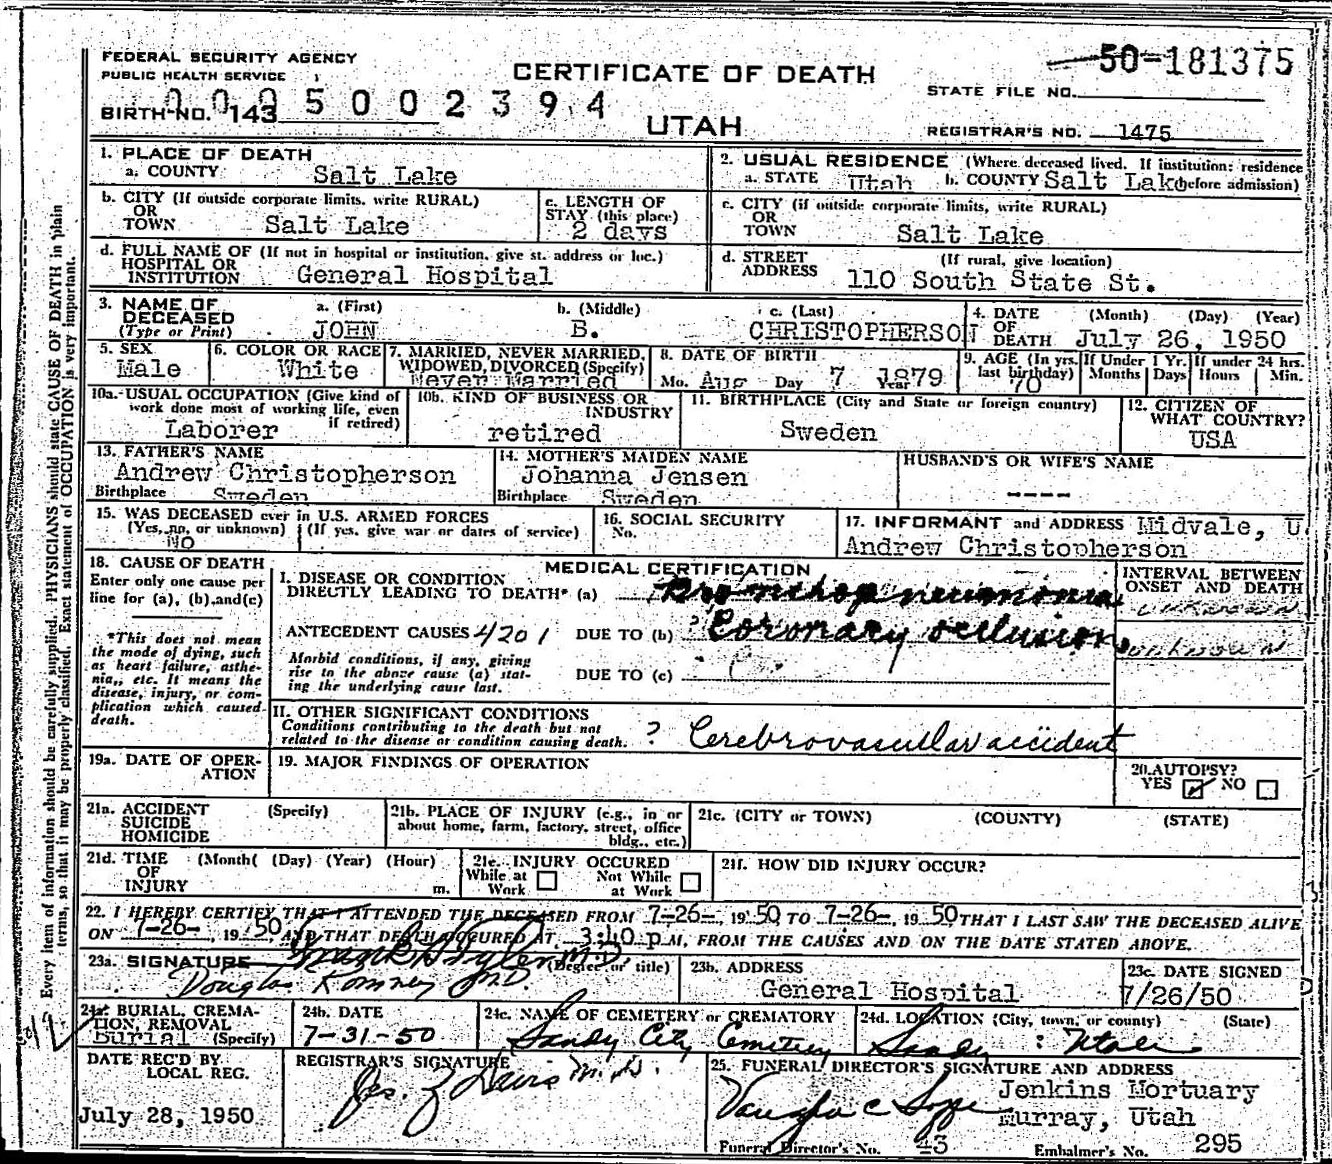 FEDERAL SECURITY AGENCY
PUBLIC HEALTH SERVICE
CERTIFICATE OF DEATH
UTAH
50-181375
STATE FILE NO.
0005002394
BIRTH NO. 143
REGISTRAR'S NO. 1475
Every item of information should be carefully supplied. PHYSICIANS should state CAUSE OF DEATH in plain
terms, so that it may be properly classified. Exact statement of OCCUPATION is very important.
1. PLACE OF DEATH
a. COUNTY Salt Lake
2. USUAL RESIDENCE (Where deceased lived. If institution: residence
a. STATE Utah b. COUNTY Salt Lake before admission)
b. CITY (If outside corporate limits, write RURAL)
OR
TOWN Salt Lake
c. LENGTH OF
STAY (this place)
2 days
c. CITY (if outside corporate limits, write RURAL)
OR
TOWN Salt Lake
d. FULL NAME OF (If not in hospital or institution, give st. address or loc.)
HOSPITAL OR
INSTITUTION General Hospital
d. STREET (If rural, give location)
ADDRESS 110 South State St.
3. NAME OF
DECEASED
(Type or Print)
a. (First) b. (Middle) c. (Last)
JOHN B. CHRISTOPHERSON
4. DATE (Month) (Day) (Year)
OF
DEATH July 26, 1950
5. SEX
Male
6. COLOR OR RACE
White
7. MARRIED, NEVER MARRIED,
WIDOWED, DIVORCED (Specify)
Never Married
8. DATE OF BIRTH
Mo. Aug Day 7 Year 1879
9. AGE (In yrs.
last birthday)
70
If Under 1 Yr.
Months Days
If under 24 hrs.
Hours Min.
10a. USUAL OCCUPATION (Give kind of
work done most of working life, even
if retired)
Laborer
10b. KIND OF BUSINESS OR
INDUSTRY
retired
11. BIRTHPLACE (City and State or foreign country)
Sweden
12. CITIZEN OF
WHAT COUNTRY?
USA
13. FATHER'S NAME
Andrew Christopherson
Birthplace Sweden
14. MOTHER'S MAIDEN NAME
Johanna Jensen
Birthplace Sweden
HUSBAND'S OR WIFE'S NAME
----
15. WAS DECEASED ever in U.S. ARMED FORCES
(Yes, no, or unknown) (If yes, give war or dates of service)
NO
16. SOCIAL SECURITY
No.
17. INFORMANT and ADDRESS Midvale, U.
Andrew Christopherson
18. CAUSE OF DEATH
Enter only one cause per
line for (a), (b), and (c)
*This does not mean
the mode of dying, such
as heart failure, asthe-
nia, etc. It means the
disease, injury, or com-
plication which caused
death.
MEDICAL CERTIFICATION
I. DISEASE OR CONDITION
DIRECTLY LEADING TO DEATH* (a) Bronchopneumonia
ANTECEDENT CAUSES 4201 DUE TO (b) ? Coronary occlusion
Morbid conditions, if any, giving
rise to the above cause (a) stat-
ing the underlying cause last.
DUE TO (c)
INTERVAL BETWEEN
ONSET AND DEATH
unknown
unknown
II. OTHER SIGNIFICANT CONDITIONS
Conditions contributing to the death but not
related to the disease or condition causing death. ? Cerebrovascular accident
19a. DATE OF OPER-
ATION
19. MAJOR FINDINGS OF OPERATION
20. AUTOPSY?
YES NO
21a. ACCIDENT (Specify)
SUICIDE
HOMICIDE
21b. PLACE OF INJURY (e.g., in or
about home, farm, factory, street, office
bldg., etc.)
21c. (CITY or TOWN) (COUNTY) (STATE)
21d. TIME (Month) (Day) (Year) (Hour)
OF
INJURY m.
21e. INJURY OCCURED
While at Work
Not While at Work
21f. HOW DID INJURY OCCUR?
22. I HEREBY CERTIFY THAT I ATTENDED THE DECEASED FROM 7-26-, 19 50 TO 7-26-, 19 50, THAT I LAST SAW THE DECEASED ALIVE
ON 7-26-, 19 50, AND THAT DEATH OCCURED AT 3:40 p M, FROM THE CAUSES AND ON THE DATE STATED ABOVE.
23a. SIGNATURE (Degree or title)
Frank H Tyler M.D.
Douglas Romney M.D.
23b. ADDRESS
General Hospital
23c. DATE SIGNED
7/26/50
24a. BURIAL, CREMA-
TION, REMOVAL
Burial (Specify)
24b. DATE
7-31-50
24c. NAME OF CEMETERY or CREMATORY
Sandy City Cemetery
24d. LOCATION (City, town, or county) (State)
Sandy Utah
DATE REC'D BY
LOCAL REG.
July 28, 1950
REGISTRAR'S SIGNATURE
25. FUNERAL DIRECTOR'S SIGNATURE AND ADDRESS
Jenkins Mortuary
Murray, Utah
Funeral Director's No. 43 Embalmer's No. 295